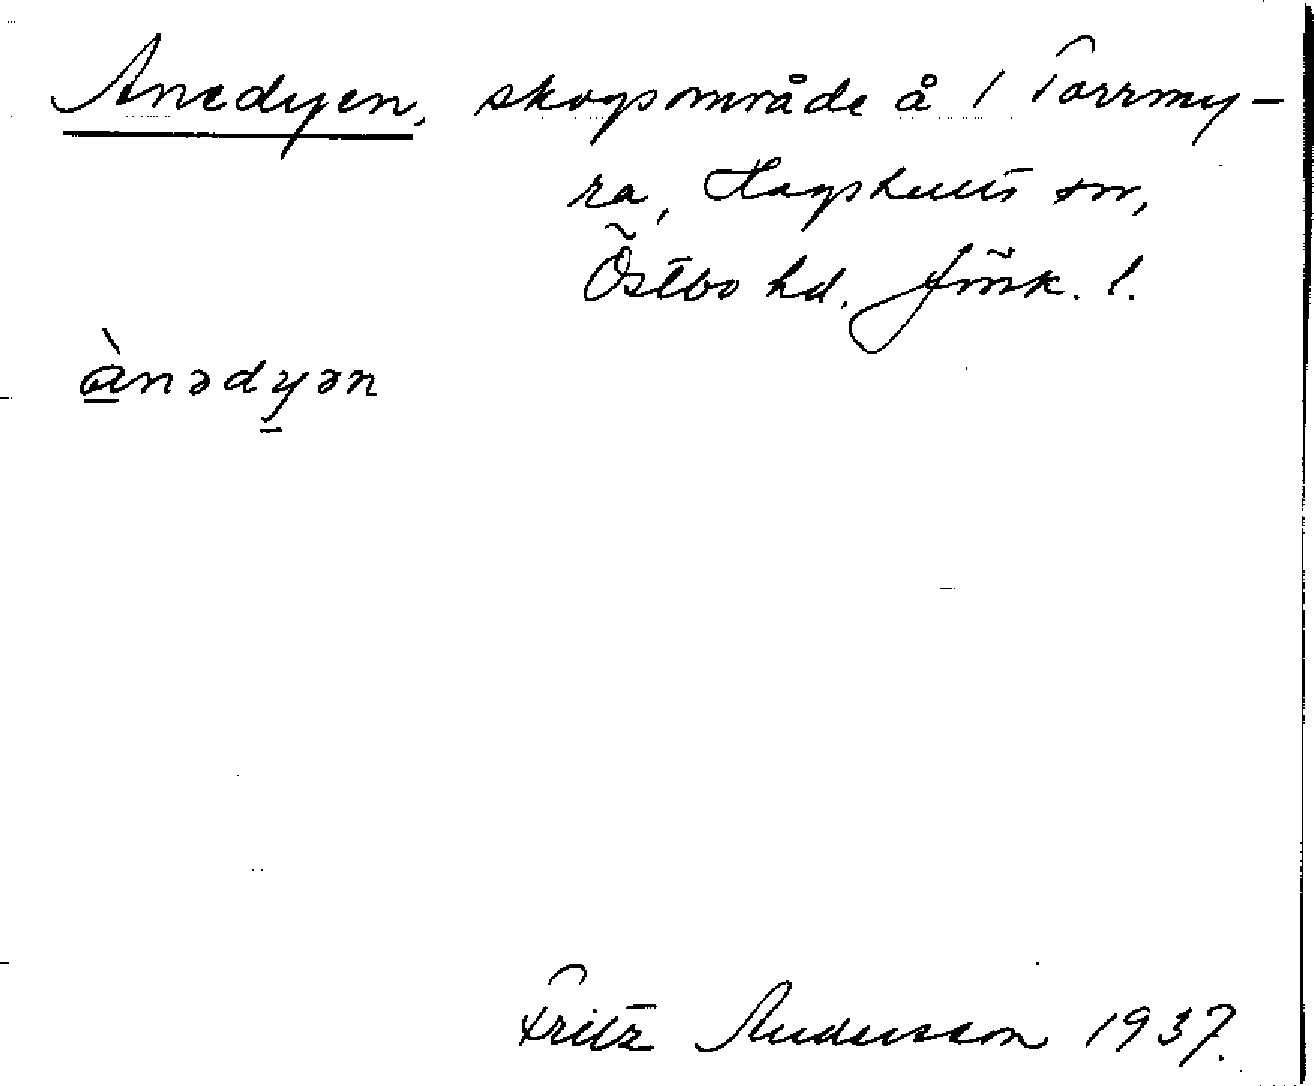 Anedyen, skogsområde å 1 Torrmy-
ra, Hagshults sn,
Östbo hd. Jönk. l.
ànədyən
Fritz Andersson 1937.